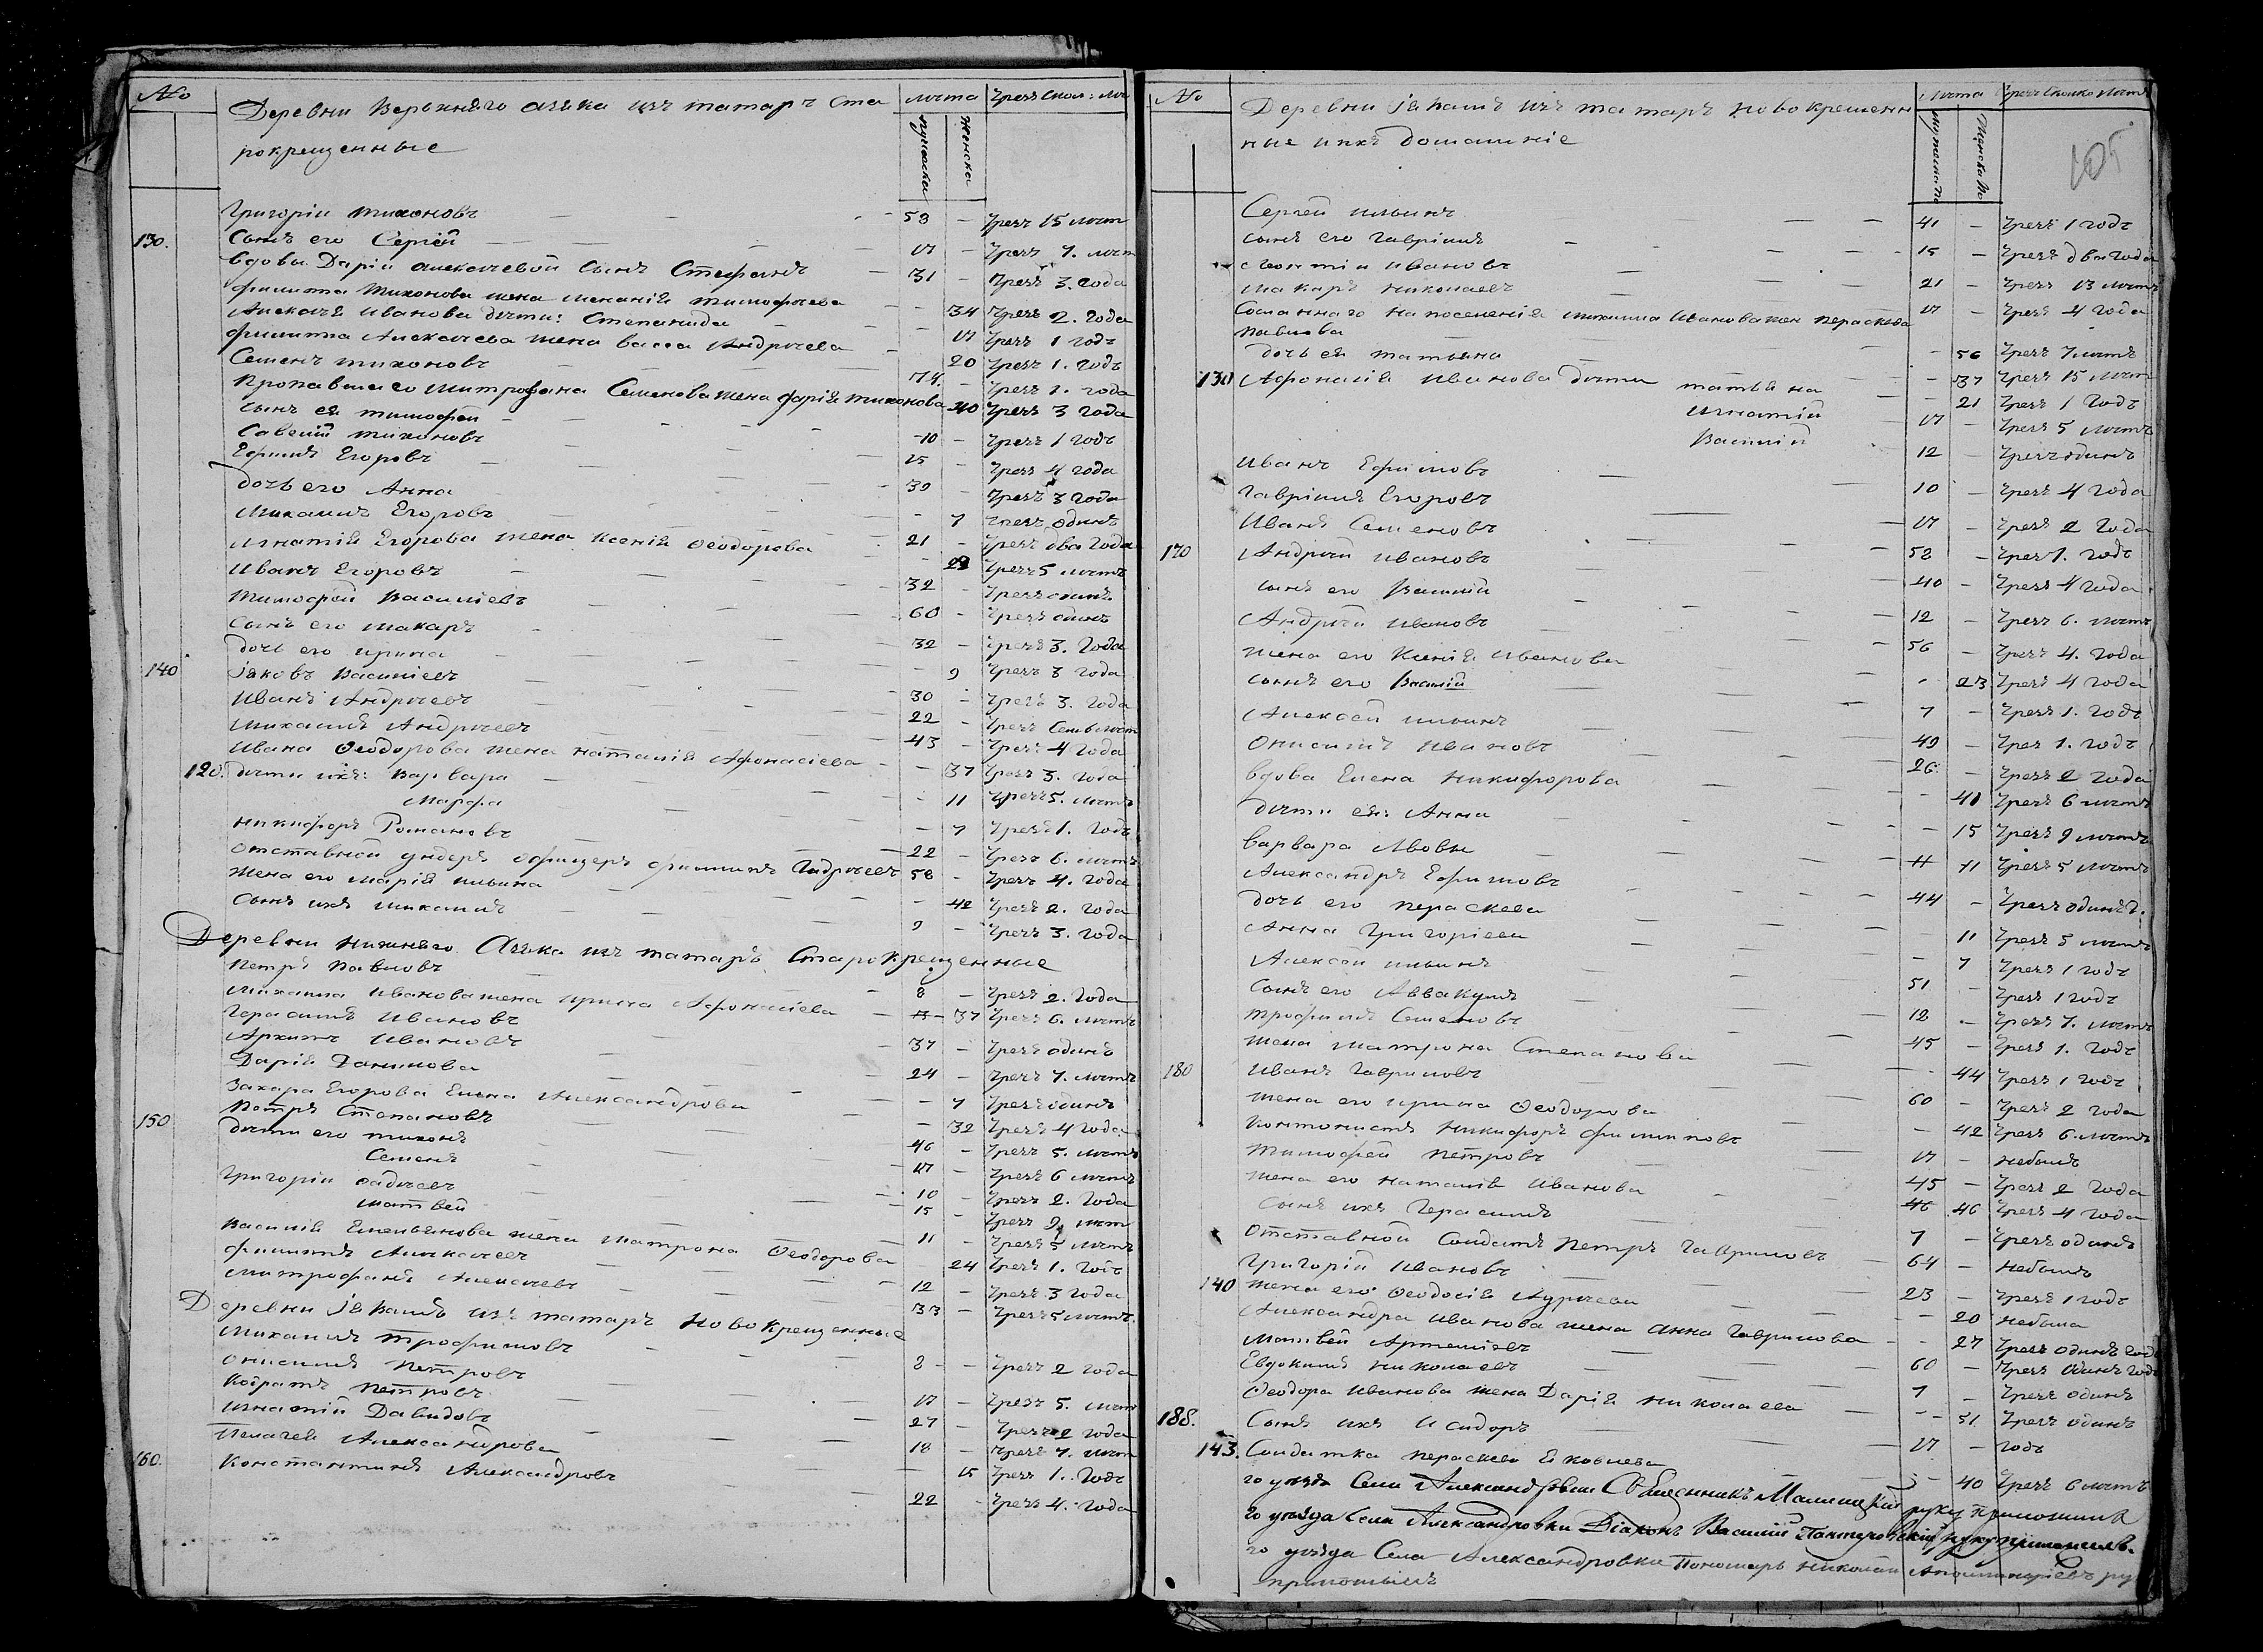 № Деревни Верхняго Азяка изъ татаръ ста лѣта Чрезъ скол: лѣ
рокрещенные мужеска Женска
Григорій Тихоновъ 58 Чрезъ 15 лѣт
130. Сынъ его Сергей 17 Чрезъ 7. лѣт
Вдовы Даріи Алексѣевой Сынъ Стефанъ 31 Чрезъ 3. года
Филипа Тихонова жена Меланія Тимофѣева 34 Чрезъ 2. года
Алексѣя Иванова дѣти: Степанида 17 Чрезъ 1 годъ
Филипа Алексѣева жена Васса Андрѣева 20 Чрезъ 1. годъ
Семенъ Тихоновъ 74. Чрезъ 1. года
Пропавшаго Митрофана Семенова жена Дарія Тихонова 40 Чрезъ 3 года
Сынъ ея Тимофей 10 Чрезъ 1 годъ
Савелій Тихоновъ 15 Чрезъ 4 года
Ефимъ Егоровъ 39 Чрезъ 3 года
дочь его Анна 7 Чрезъ одинъ
Михаилъ Егоровъ 21 Чрезъ два года
Игнатія Егорова жена Ксенія Ѳеодорова 28 Чрезъ 5 лѣтъ
Иванъ Егоровъ 32 Чрезъ одинъ
Тимофей Василіевъ 60 Чрезъ одинъ
Сынъ его Макаръ 32 Чрезъ 3. года
дочь его Ирина 9 Чрезъ 3 года
140 Іяковъ Василіевъ 30 Чрезъ 3. года
Иванъ Андрѣевъ 22 Чрезъ Семь лѣт
Михаилъ Андрѣевъ 43 Чрезъ 4 года
Ивана Ѳеодорова жена Наталія Афонасіева 37 Чрезъ 3. года
120. дѣти ихъ: Варвара 11 Чрезъ 5. лѣтъ
Марфа 7 Чрезъ 1. годъ
Никифоръ Романовъ 22 Чрезъ 6. лѣтъ
Отставной ундеръ офицеръ Филипъ Андрѣевъ 58 Чрезъ 4. года
Жена его Марія Ильина 42 Чрезъ 2. года
Сынъ ихъ Михаилъ 9 Чрезъ 3. года
Деревни Нижняго Азяка изъ татаръ Старокрещенные
Петръ Павловъ 8 Чрезъ 2. года
Михаила Иванова жена Ирина Афонасіева 37 Чрезъ 6. лѣтъ
Герасимъ Ивановъ 37 Чрезъ одинъ
Архипъ Ивановъ 24 Чрезъ 7. лѣтъ
Дарія Данилова 7 Чрезъ одинъ
Захара Егорова Елена Александрова 32 Чрезъ 4 года
150 Петръ Степановъ 46 Чрезъ 5. лѣтъ
дѣти его Тихонъ 17 Чрезъ 6 лѣтъ
Семенъ 10 Чрезъ 2. года
Григорій Фадѣевъ 15 Чрезъ 9 лѣт
Матвей 11 Чрезъ 5 лѣтъ
Василія Емельянова жена Матрона Ѳеодорова 24 Чрезъ 1. годъ
Филипъ Алексѣевъ 12 Чрезъ 3 года
Митрофанъ Алексѣевъ 33 Чрезъ 5 лѣтъ.
Деревни Іявашъ изъ татаръ Новокрещенные
Михаилъ Трофимовъ 8 Чрезъ 2 года
Онисимъ Петровъ 17 Чрезъ 5. лѣт
Кодратъ Петровъ 27 Чрезъ 2 года
Игнатій Давыдовъ 18 Чрезъ 7. лѣт
Пелагея Александрова 15 Чрезъ 1. годъ
160. Константинъ Александровъ 22 Чрезъ 4. года
№ Деревни Іявашъ изъ татаръ Новокрещен Лѣта Чрезъ сколко лѣтъ
ные ихъ домашніе 105
Сергей Ильинъ 41 Чрезъ 1 годъ
сынъ его Гавріилъ 15 Чрезъ два года
Леонтій Ивановъ 21 Чрезъ 13 лѣтъ
Макаръ Николаевъ 17 Чрезъ 4 года
Сосланнаго на поселенія Михаила Иванова жен Пераскева
Павлова 56 Чрезъ 7 лѣтъ
дочь ея Татьяна 37 Чрезъ 15 лѣт
130 Афонасія Иванова дѣти Татьяна 21 Чрезъ 1 годъ
Игнатій 17 Чрезъ 5 лѣтъ
Василій 12 Чрезъ одинъ
Иванъ Ефимовъ 10 Чрезъ 4 года
Гавріилъ Егоровъ 17 Чрезъ 2 года
Иванъ Семеновъ 58 Чрезъ 1. годъ
170 Андрей Ивановъ 40 Чрезъ 4 года
сынъ его Василій 12 Чрезъ 6. лѣтъ
Андрей Ивановъ 56 Чрезъ 4. года
жена его Ксенія Иванова 23 Чрезъ 4 года
сынъ его Василій 7 Чрезъ 1. годъ
Алексей Ильинъ 49 Чрез 1. годъ
Онисимъ Ивановъ 26. Чрезъ 2 года
Вдова Елена Никифорова 41 Чрезъ 6 лѣтъ
дѣти ея: Анна 15 Чрезъ 9 лѣтъ
Варвара Львовы 11 Чрезъ 5 лѣтъ
Александръ Ефимовъ 44 Чрезъ одинъ.
дочь его Пераскева 11 Чрезъ 5 лѣтъ
Анна Григоріева 7 Чрезъ 1 годъ
Алексей Ильинъ 51 Чрезъ 1 годъ
Сынъ его Аввакумъ 12 Чрезъ 7. лѣтъ
Трофимъ Семеновъ 45 Чрезъ 1. годъ
жена Матрона Степанова 44 Чрезъ 1 годъ
180 Иванъ Гавриловъ 60 Чрезъ 2 года
жена его Ирина Ѳеодорова 42 Чрезъ 6. лѣтъ
Контонистъ Никифоръ Филиповъ 17 небылъ
Тимофей Петровъ 45 Чрезъ 2 года
жена его Наталія Иванова 46 Чрезъ 4 года
Сынъ ихъ Герасимъ 7 Чрезъ одинъ
Отставной Солдатъ Петръ Гавриловъ 64 небылъ
Григорій Ивановъ 23 Чрезъ 1 годъ
140 жена его Ѳеодосія 20 небыла
Александра Иванова жена Анна Гаврилова 27 Чрезъ одинъ годъ
Матвей Артемьевъ 60 Чрезъ одинъ годъ
Евдокимъ Николаевъ 7 Чрезъ одинъ
Ѳеодора Иванова жена Дарія Николаева 51 Чрезъ одинъ
188. Сынъ ихъ Исидоръ 17 годъ
143. Солдатка Пераскева Яковлева 40 Чрезъ 6 лѣтъ
го уѣзда Села Александровки Священникъ руку приложилъ
го уѣзда Села Александровки Діаконъ Василій руку приложилъ.
го уѣзда Села Александровки Пономарь Николай Аполинаріевъ ру
приложилъ